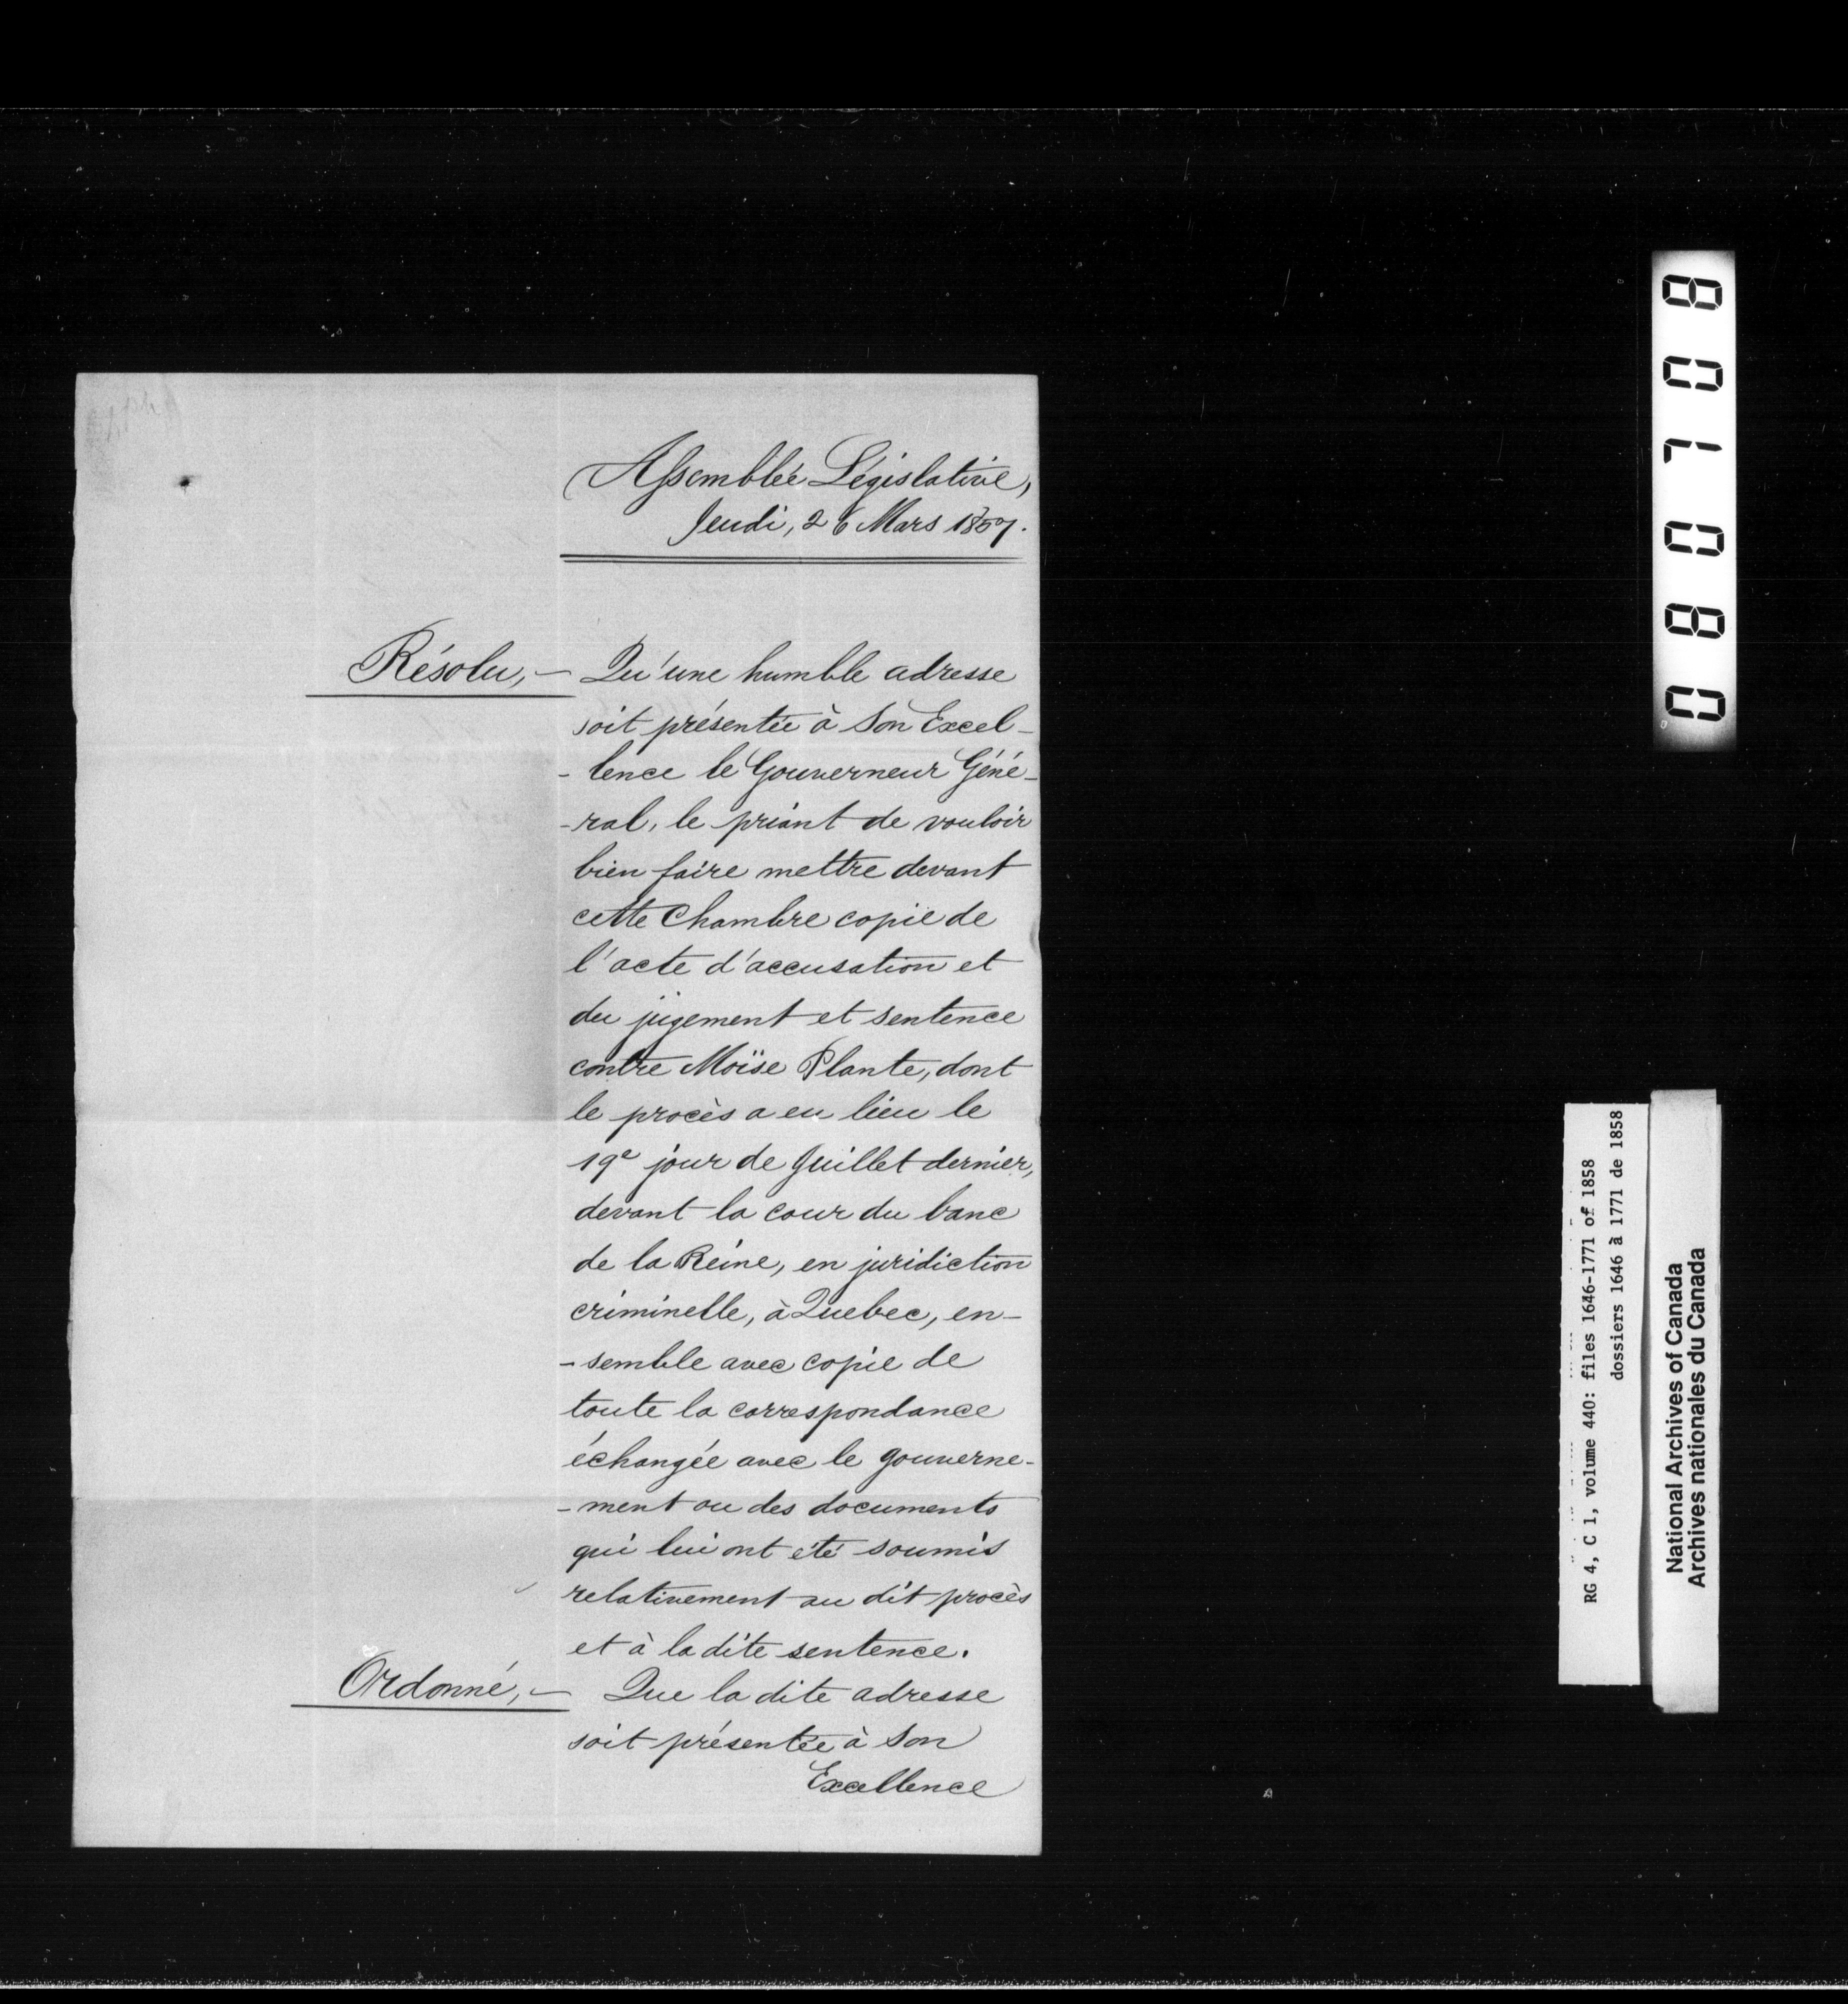 Assemblée Législative,
Jeudi, 26 Mars 1857.
Résolu,- Qu'une humble adresse
soit présentée à Son Excel-
-lence le Gouverneur Géné-
-ral, le priant de vouloir
bien faire mettre devant
cette Chambre copie de
l'acte d'accusation et
du jugement et sentence
contre Moïse Plante, dont
le procès a eu lieu le
19e jour de Juillet dernier,
devant la cour du banc
de la Reine, en juridiction
criminelle, à Quebec, en-
-semble avec copie de
toute la correspondance
échangée avec le gouverne-
-ment ou des documents
qui lui ont été soumis
relativement au dit procès
et à la dite sentence.
Ordonné,- Que la dite adresse
soit présentée à Son
Excellence
080708
RG 4, C 1, volume 440: files 1646-1771 of 1858
dossiers 1646 à 1771 de 1858
National Archives of Canada
Archives nationales du Canada